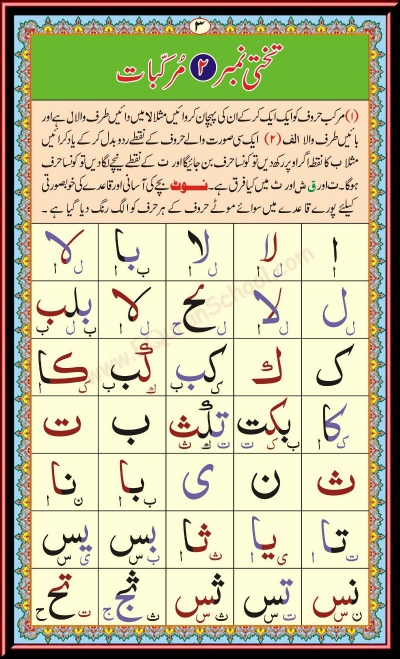 ۳
تختی نمبر ۲ مُرکّبات
(۱) مرکب حروف کو ایک ایک کر کے ان کی پہچان کروائیں مثلاً لا میں دائیں طرف والا ل ہے اور
بائیں طرف والا الف (۲) ایک سی صورت والے حروف کے نقطے ردو بدل کر کے یاد کرائیں
مثلاً ب کا نقطہ اگر اوپر رکھ دیں تو کونسا حرف بن جائیگا اور ت کے نقطے نیچے لگا دیں تو کونسا حرف
ہوگا۔ ت اور ق ش اور ث میں کیا فرق ہے۔ نوٹ بچے کی آسانی اور قاعدے کی خوبصورتی
کیلئے پورے قاعدے میں سوائے موٹے حروف کے ہر حرف کو الگ رنگ دیا گیا ہے۔
ا لا لا با لا
ا ل ا ل ا ب ا ل
ل لا لح لا بلب
ا ل ل ح ا ل ب ل ب
ک ك کب کب کا
ک ب ک ب ک ا
کا بکت تلث ب ت
ک ا ب ک ت ت ل ث
ث ن ی با نا
ب ا ن ا
تا یا ثا بس یس
ت ا ی ا ث ا ب س ی س
نس تس ثس ثج تح
ن س ت س ث س ث ج ت ح
www.eQuranSchool.com